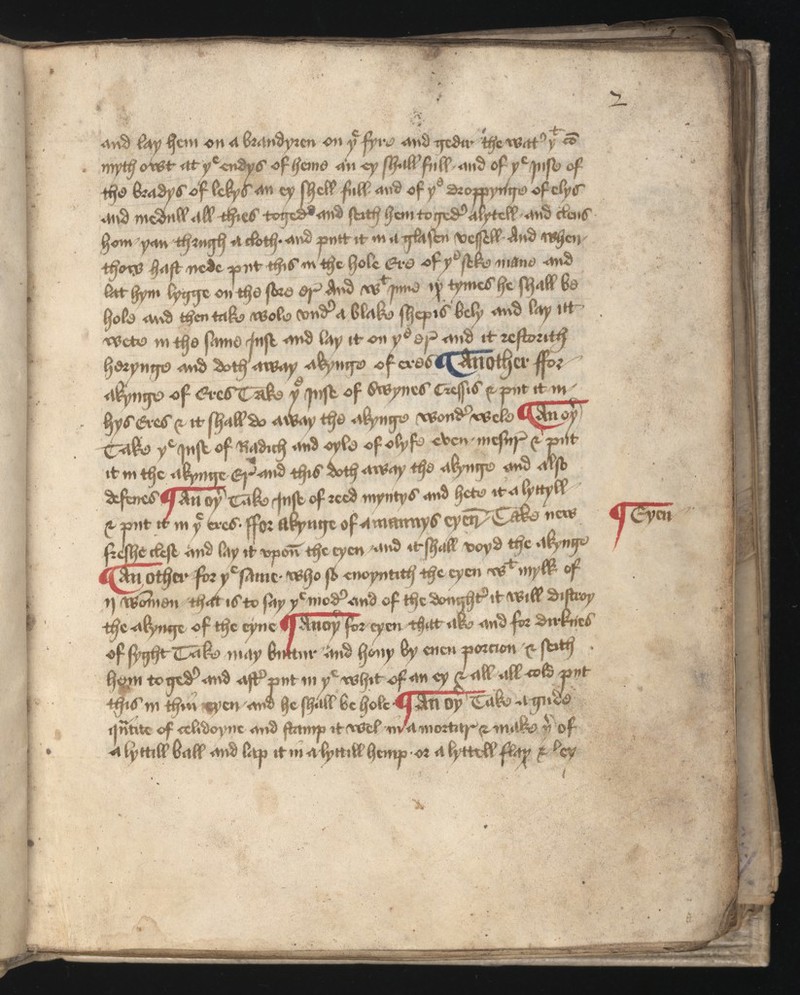 2
and lay hem on a brandyren on yͤ fyre and gedir the watͬ yͭ cō
myth owt at yͤ endys of heme an ey shall full · and of yͤ Juse of
the bradys of lekys an ey shell full and of yͤ droppynge of elys
and medull all thies togedͬ and seith hem togedͬ alytell · and clens
hom yan thrugh a cloth · and putt it in a glasen vessell · And when
thow hast nede put this in the hole Ere of yͤ seke mane and
lat hym lygge on the sore erͤ And wͭ Jnne ix tymes he shall be
hole and then take wole vndͬ a blake shepis bely and lay itt
wete in the same Juse and lay it on yͤ erͤ and it restorith
herynge and doth away akynge of eres ¶ Another ffor
akynge of Eres Take yͤ Juse of Swynes Cressis & put it in
hys Eres & it shall do away the akynge wondͬ wele ¶ An oyͬ
Take yͤ Juse of Radich and oyle of olyfe even mesurͤ & put
it in the akynge Erͤ and this doth away the akynge and also
defenes ¶ An oyͬ Take Juse of reed myntys and hete it a lyttyll
& put it in yͤ eres · ffor akynge of a mannys eyen̄ Take new
freshe chese and lay it vpon̄ the eyen and it shall voyd the akynge
¶ Eyen
¶ An other for yͤ same · who so enoyntith the eyen wͭ mylk of
ij women that is to say yͤ modͬ and of the doughtͬ it will distroy
the akynge of the eyne ¶ An oyͬ for eyen that ake and for dirknes
of syght Take may buttur and hony by euen porcion & seith
hem togedͬ and aftͬ put in yͤ whit of an ey & all all cold put
this in thin eyen and he shall be hole ¶ An oyͬ Take a gude
qn̄tite of celidoyne and stamp it wel in a mortar & make yͬ of
a lyttill ball and lap it in a lyttill hemp · or a lyttell flax & ley